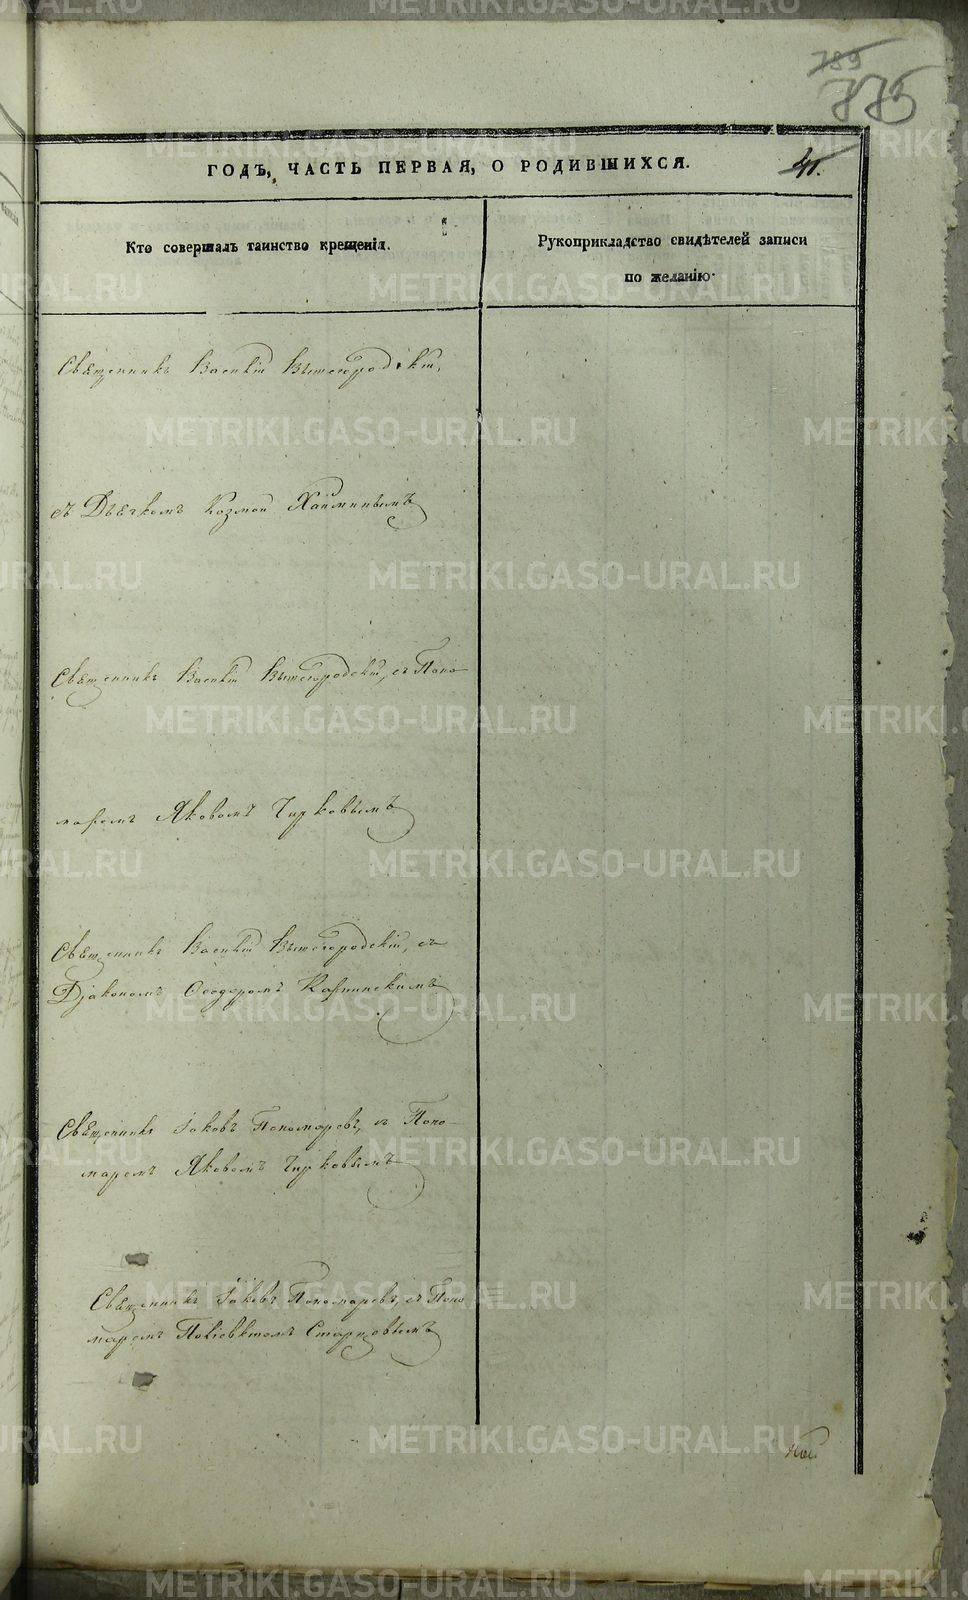 789
775
ГОДЪ, ЧАСТЬ ПЕРВАЯ, О РОДИВШИХСЯ.
Кто совершалъ таинство крещенія.
Рукоприкладство свидѣтелей записи
по желанію.
Священникъ Василій Вышегородскій,
съ Дьячкомъ Козмой Хайминымъ
Священникъ Василій Вышегородскій, съ Поно-
маремъ Яковомъ Чирковымъ
Священникъ Василій Вышегородскій, съ
Діакономъ Ѳеодоромъ Карпинскимъ
Священникъ Іаковъ Пономаревъ, съ Поно-
маремъ Яковомъ Чирковымъ
Священникъ Іаковъ Пономаревъ, съ Поно-
маремъ Поліевктомъ Старцовымъ
METRIKI.GASO-URAL.RU